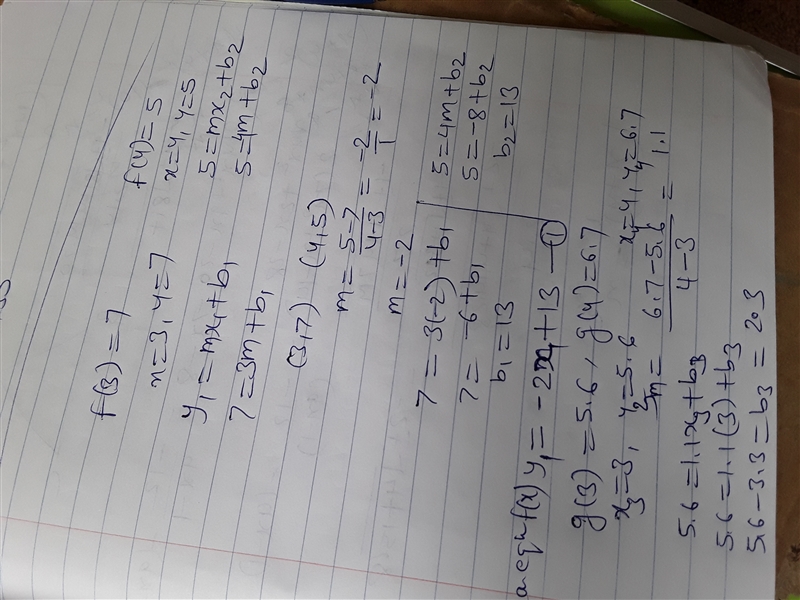 f(3)=7 f(4)=5
x=3, y=7 x=4, y=5
y₁=mx₁+b₁ 5=mx₂+b₂
7=3m+b₁ 5=4m+b₂
(3,7) (4,5)
m=5-7/4-3=-2/1=-2
m=-2
7=3(-2)+b₁ 5=4m+b₂
7=-6+b₁ 5=-8+b₂
b₁=13 b₂=13
f(x) y₁=-2x₁+13 — ①
g(3)=5.6, g(4)=6.7
x₃=3, y₃=5.6 x₄=4, y₄=6.7
m=6.7-5.6/4-3=1.1
5.6=1.1x₃+b₃
5.6=1.1(3)+b₃
5.6-3.3=b₃=2.3